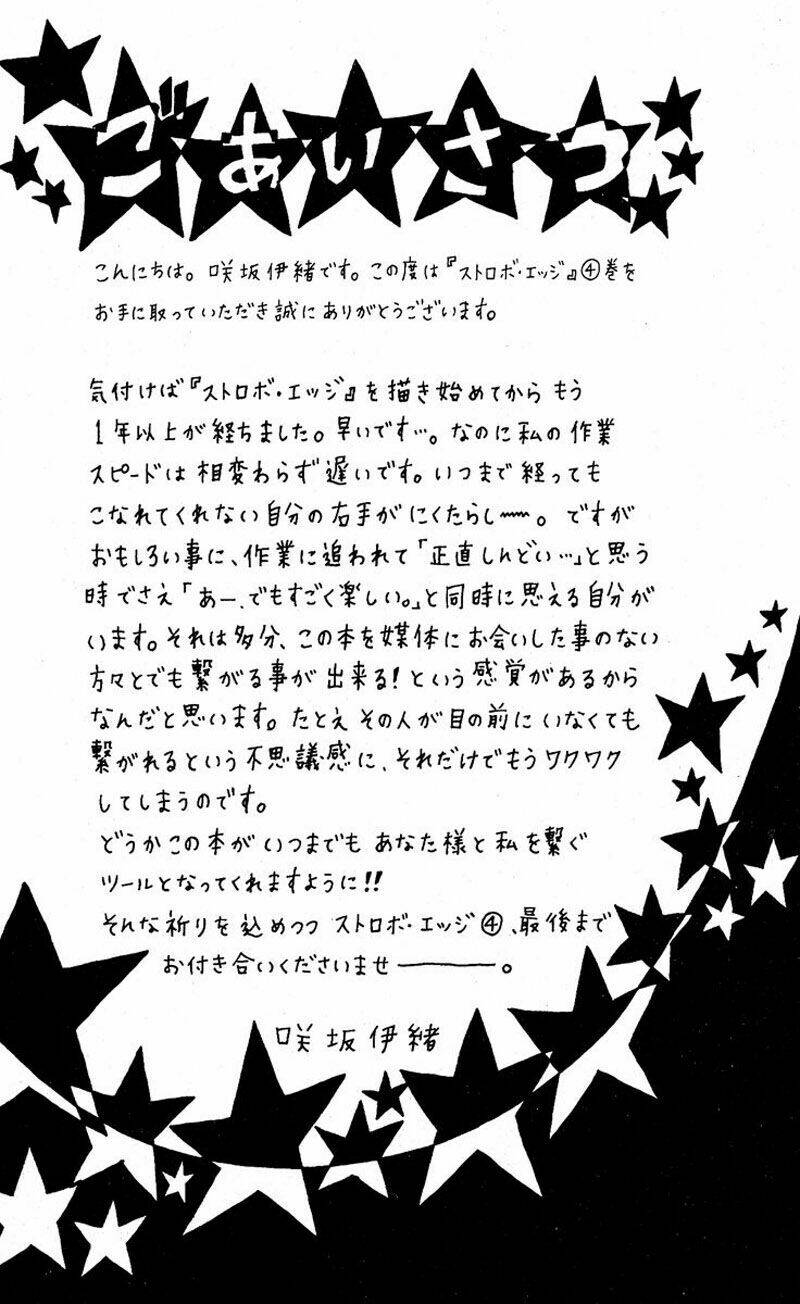 ごあいさつ
こんにちは。咲坂伊緒です。この度は『ストロボ・エッジ』④巻を
お手に取っていただき誠にありがとうございます。
気付けば『ストロボ・エッジ』を描き始めてから もう
1年以上が経ちました。早いです…。なのに私の作業
スピードは相変わらず遅いです。いつまで経っても
こなれてくれない自分の右手がにくたらし〜〜。ですが
おもしろい事に、作業に追われて「正直しんどい…」と思う
時でさえ「あー、でもすごく楽しい。」と同時に思える自分が
います。それは多分、この本を媒体にお会いした事のない
方々とでも繋がる事が出来る!という感覚があるから
なんだと思います。たとえその人が目の前にいなくても
繋がれるという不思議感に、それだけでもうワクワク
してしまうのです。
どうかこの本がいつまでも あなた様と私を繋ぐ
ツールとなってくれますように!!
そんな祈りを込めつつ ストロボ・エッジ④、最後まで
お付き合いくださいませ―――。
咲坂伊緒